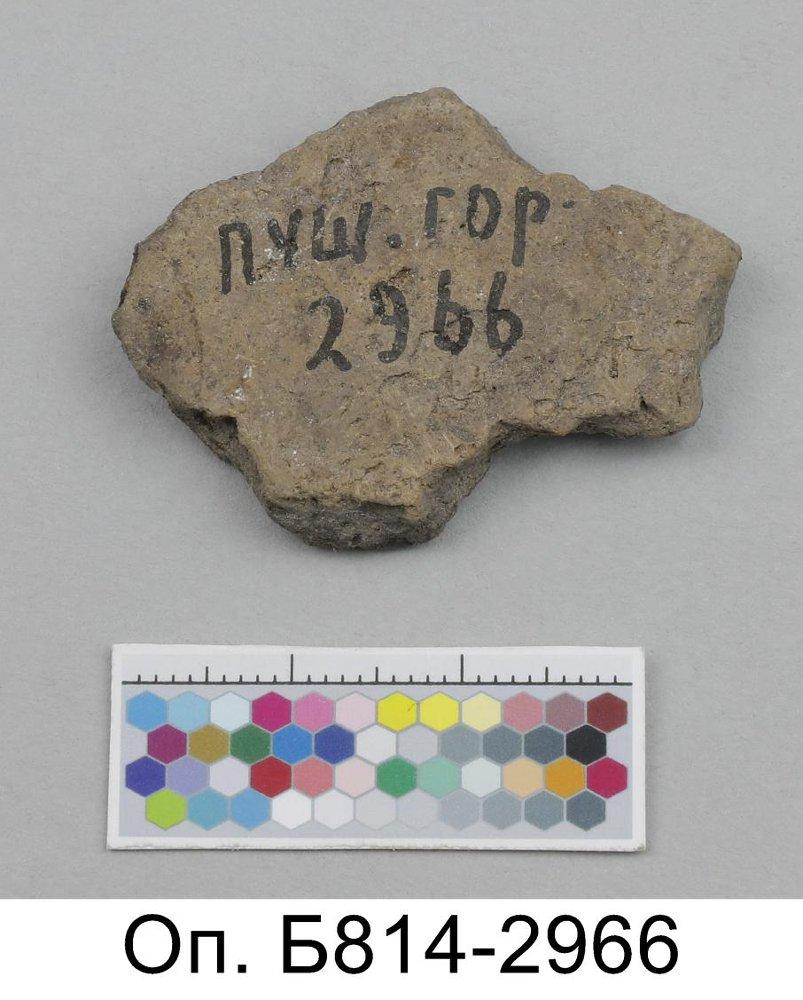 пуш. гор.
2966
Оп. Б814-2966